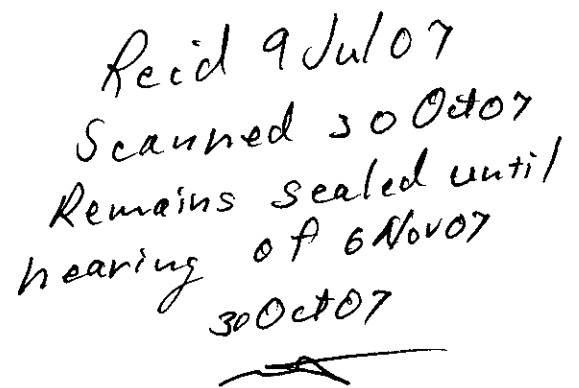 Recd 9 Jul 07
Scanned 30 Oct 07
Remains sealed until
hearing of 6 Nov 07
30 Oct 07